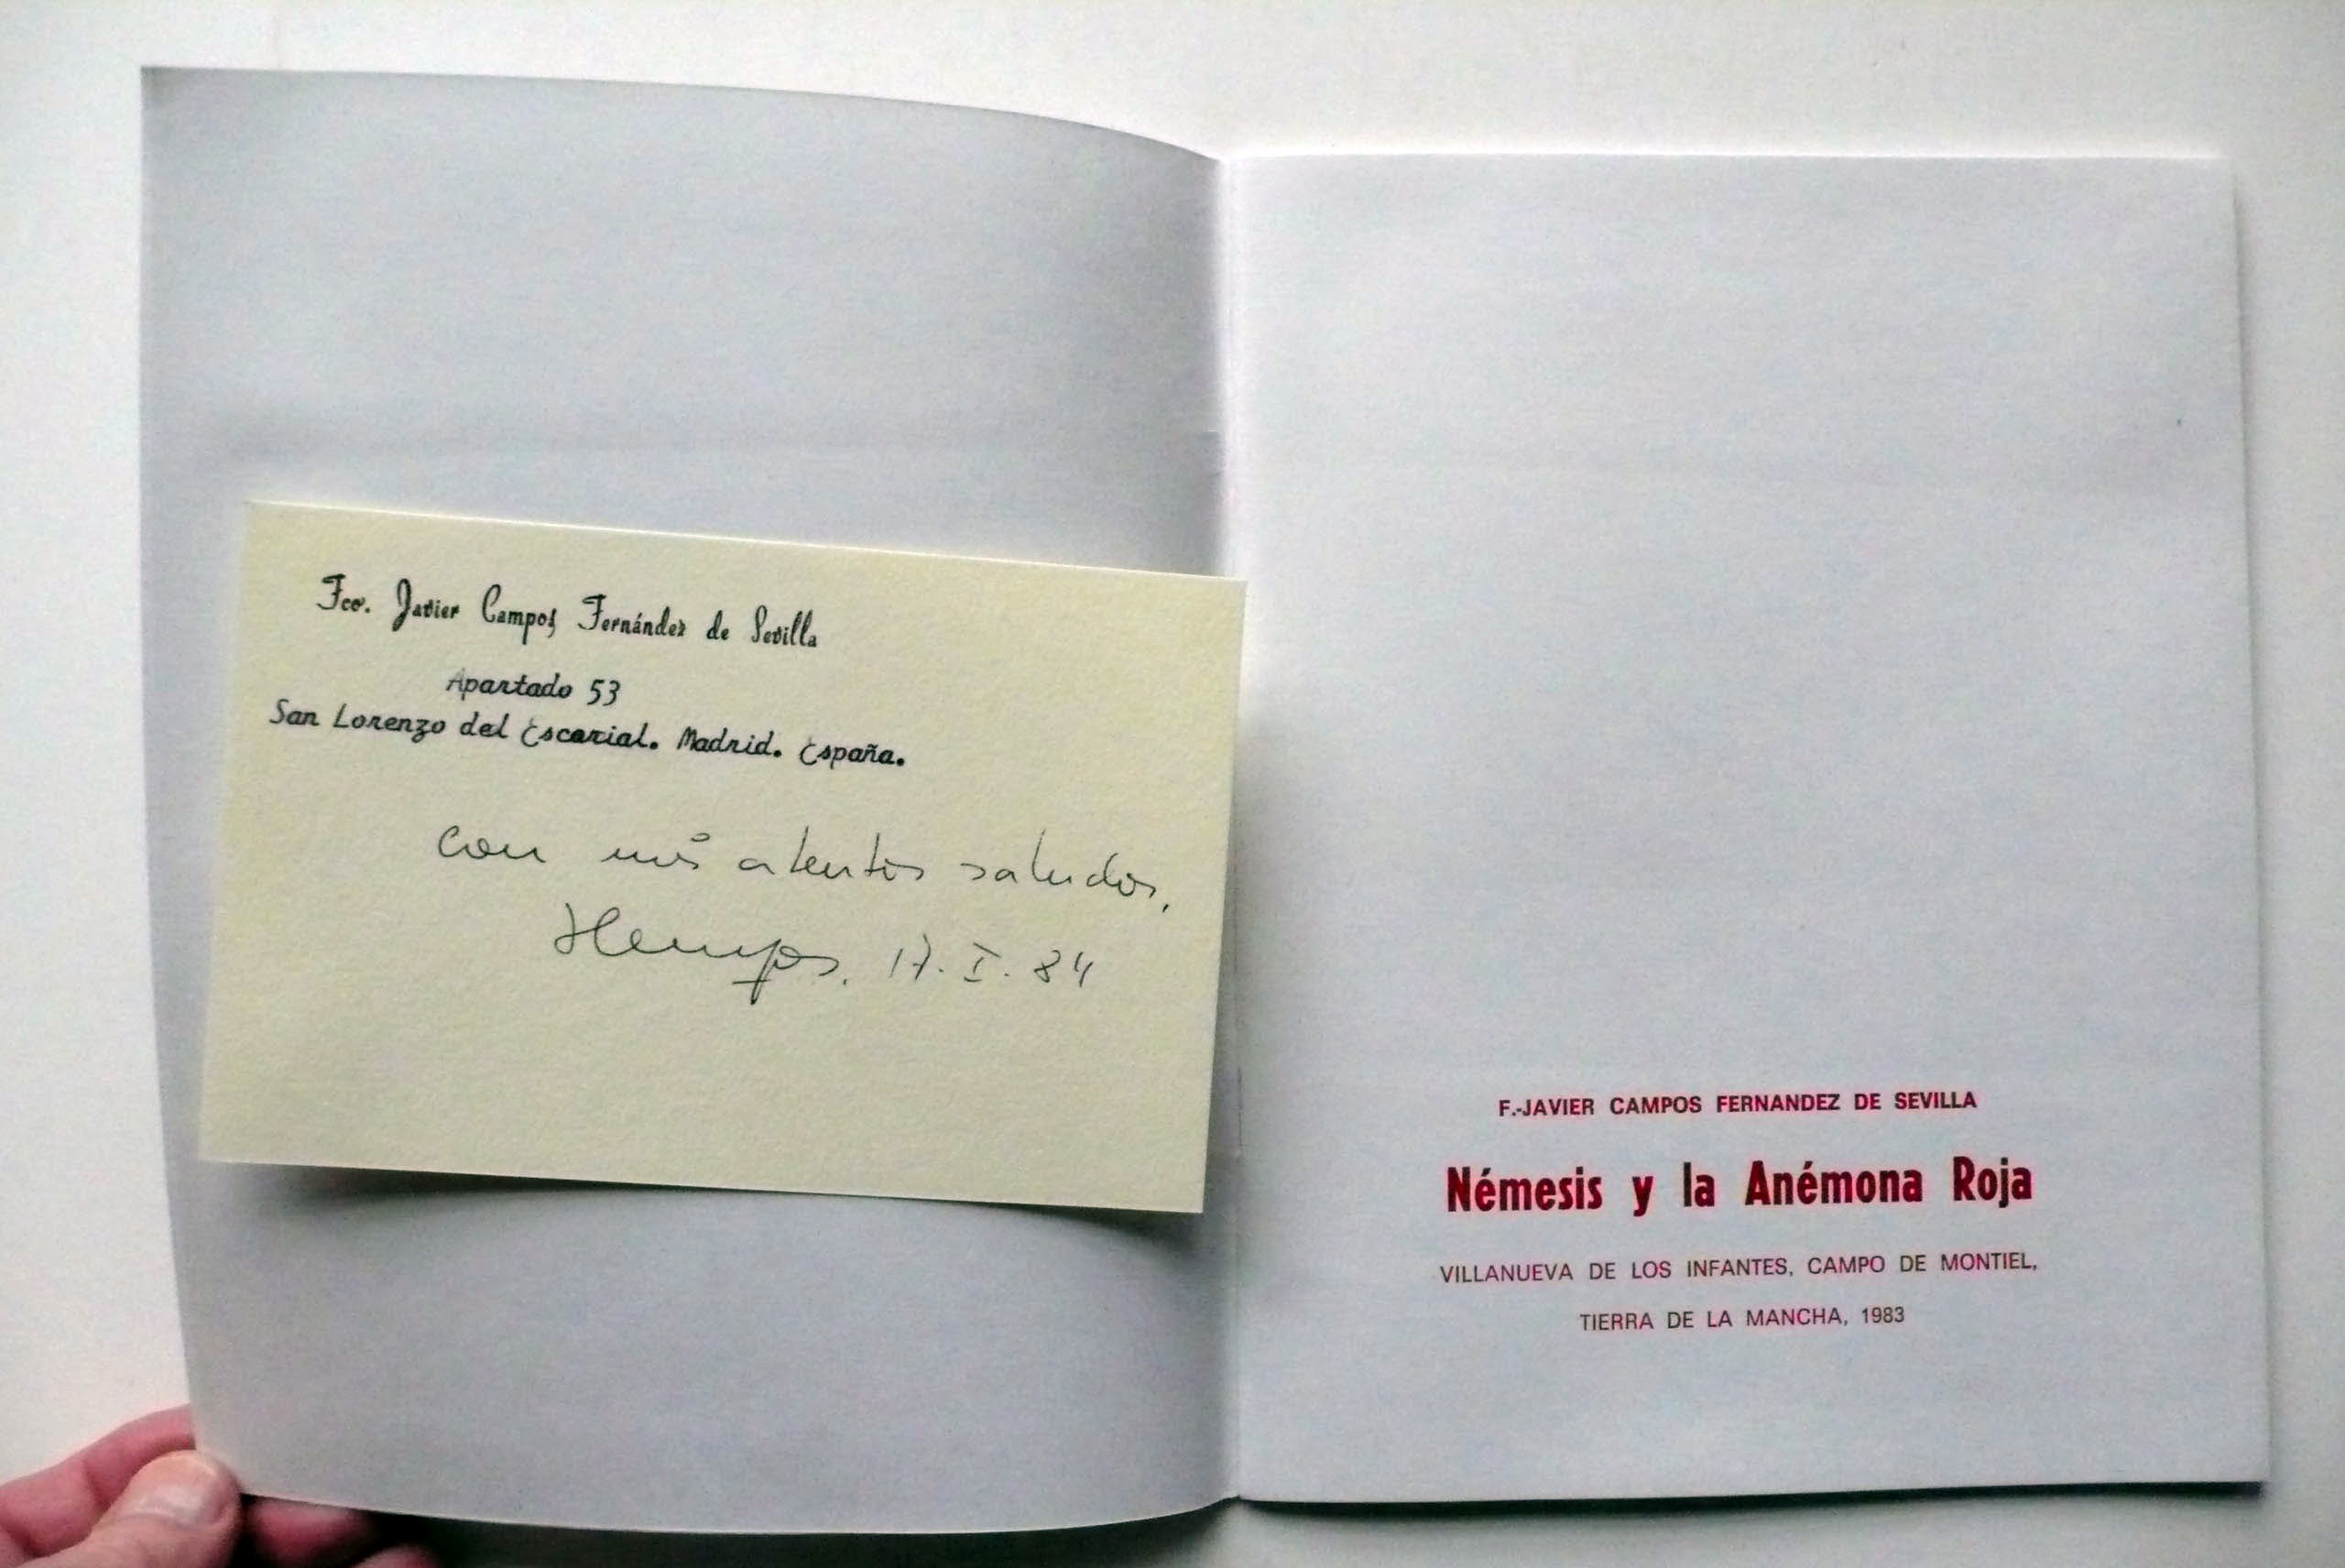 Fco. Javier Campos Fernández de Sevilla
Apartado 53
San Lorenzo del Escorial. Madrid. España.
con mis atentos saludos,
17. I. 84
F.-JAVIER CAMPOS FERNANDEZ DE SEVILLA
Némesis y la Anémona Roja
VILLANUEVA DE LOS INFANTES, CAMPO DE MONTIEL,
TIERRA DE LA MANCHA, 1983